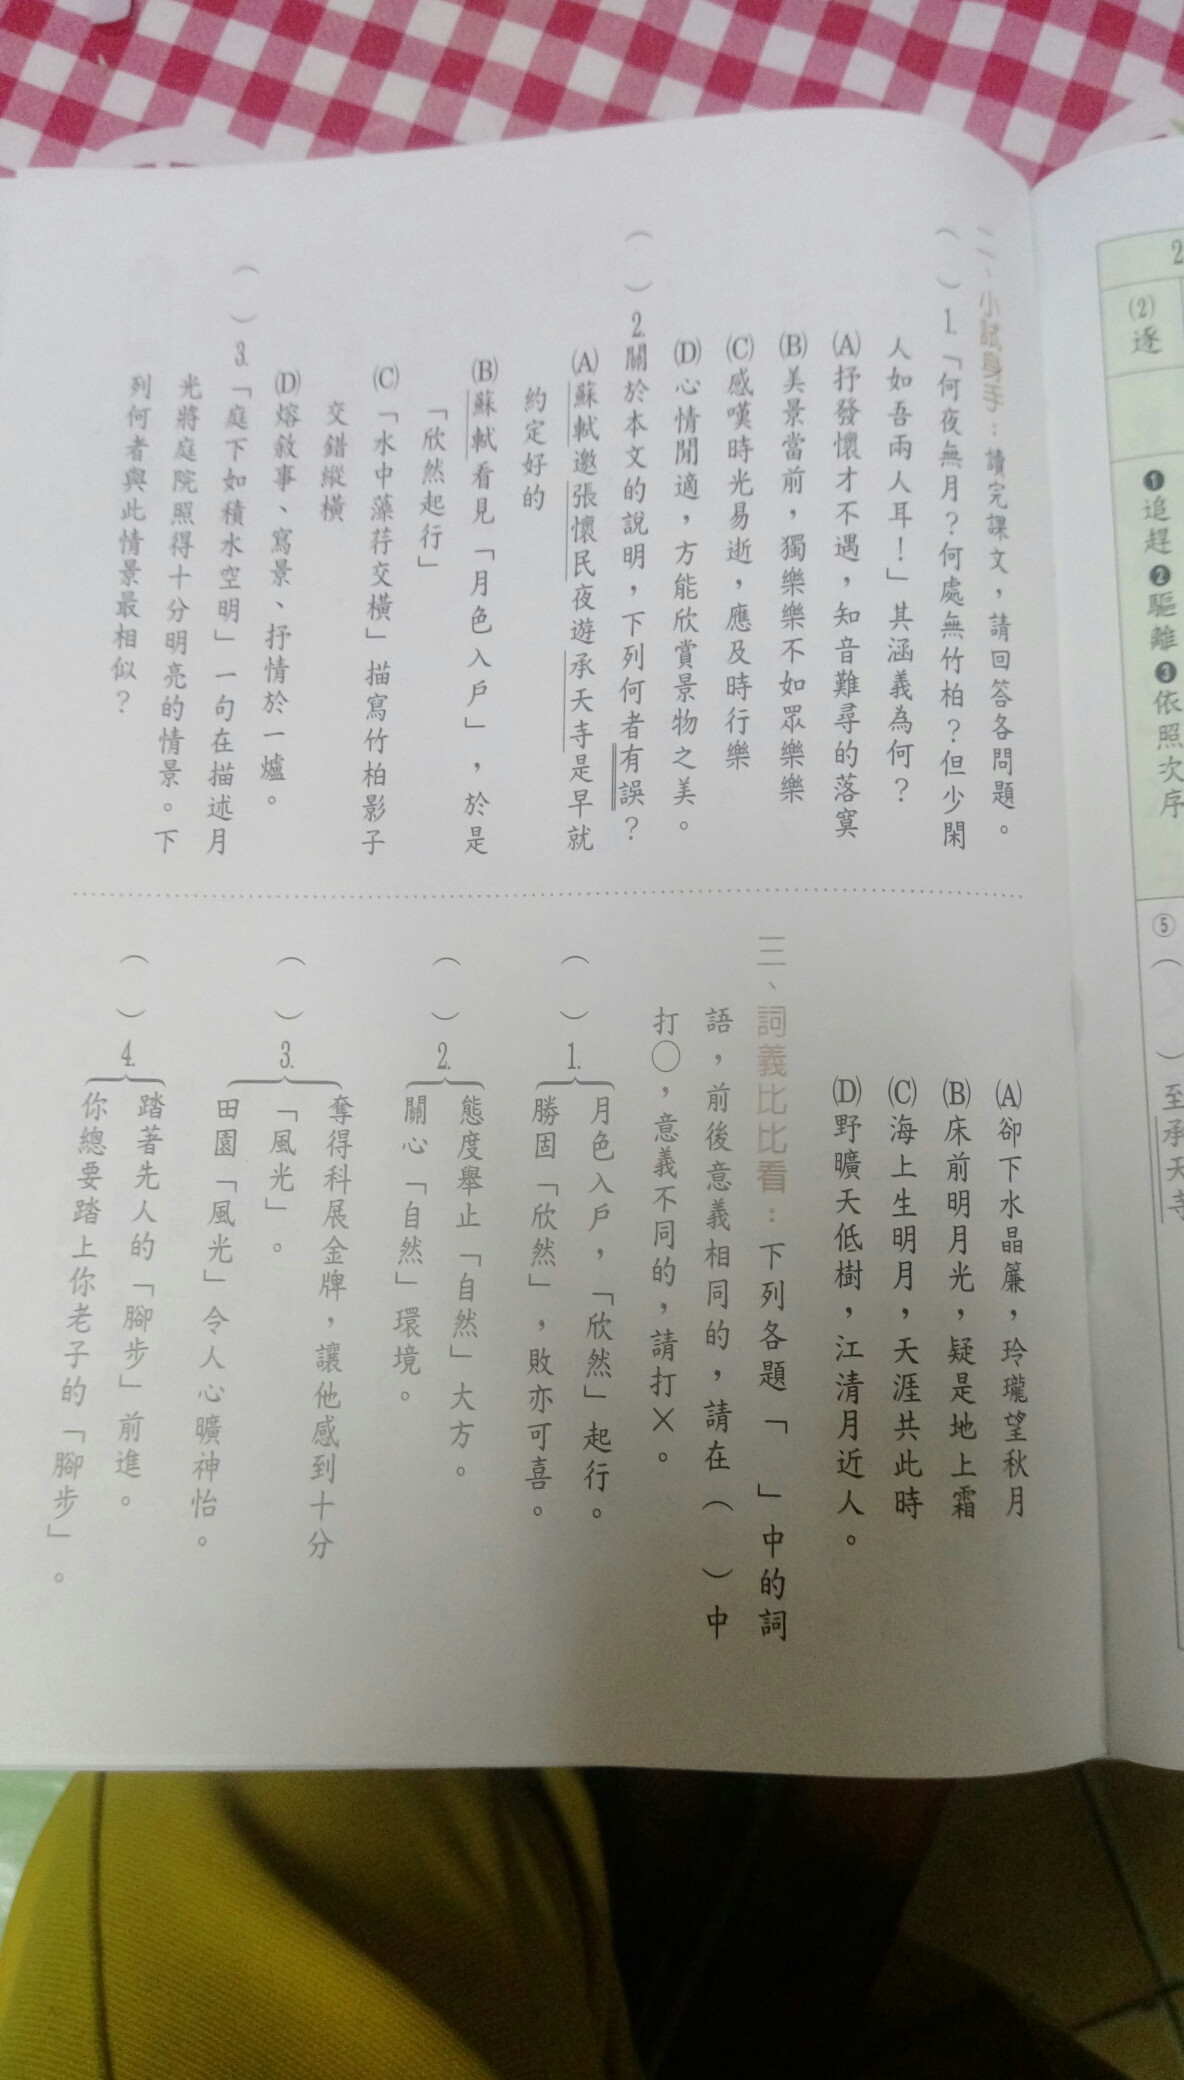 2
(2)逐
❶追趕❷驅離❸依照次序
⑤( )至承天寺
二、小試身手：讀完課文，請回答各問題。
( )1.「何夜無月？何處無竹柏？但少閑
人如吾兩人耳！」其涵義為何？
(A)抒發懷才不遇，知音難尋的落寞
(B)美景當前，獨樂樂不如眾樂樂
(C)感嘆時光易逝，應及時行樂
(D)心情閒適，方能欣賞景物之美。
( )2.關於本文的說明，下列何者有誤？
(A)蘇軾邀張懷民夜遊承天寺是早就
約定好的
(B)蘇軾看見「月色入戶」，於是
「欣然起行」
(C)「水中藻荇交橫」描寫竹柏影子
交錯縱橫
(D)熔敘事、寫景、抒情於一爐。
( )3.「庭下如積水空明」一句在描述月
光將庭院照得十分明亮的情景。下
列何者與此情景最相似？
(A)卻下水晶簾，玲瓏望秋月
(B)床前明月光，疑是地上霜
(C)海上生明月，天涯共此時
(D)野曠天低樹，江清月近人。
三、詞義比比看：下列各題「　」中的詞
語，前後意義相同的，請在( )中
打○，意義不同的，請打×。
( )1.月色入戶，「欣然」起行。
勝固「欣然」，敗亦可喜。
( )2.態度舉止「自然」大方。
關心「自然」環境。
( )3.奪得科展金牌，讓他感到十分
「風光」。
田園「風光」令人心曠神怡。
( )4.踏著先人的「腳步」前進。
你總要踏上你老子的「腳步」。